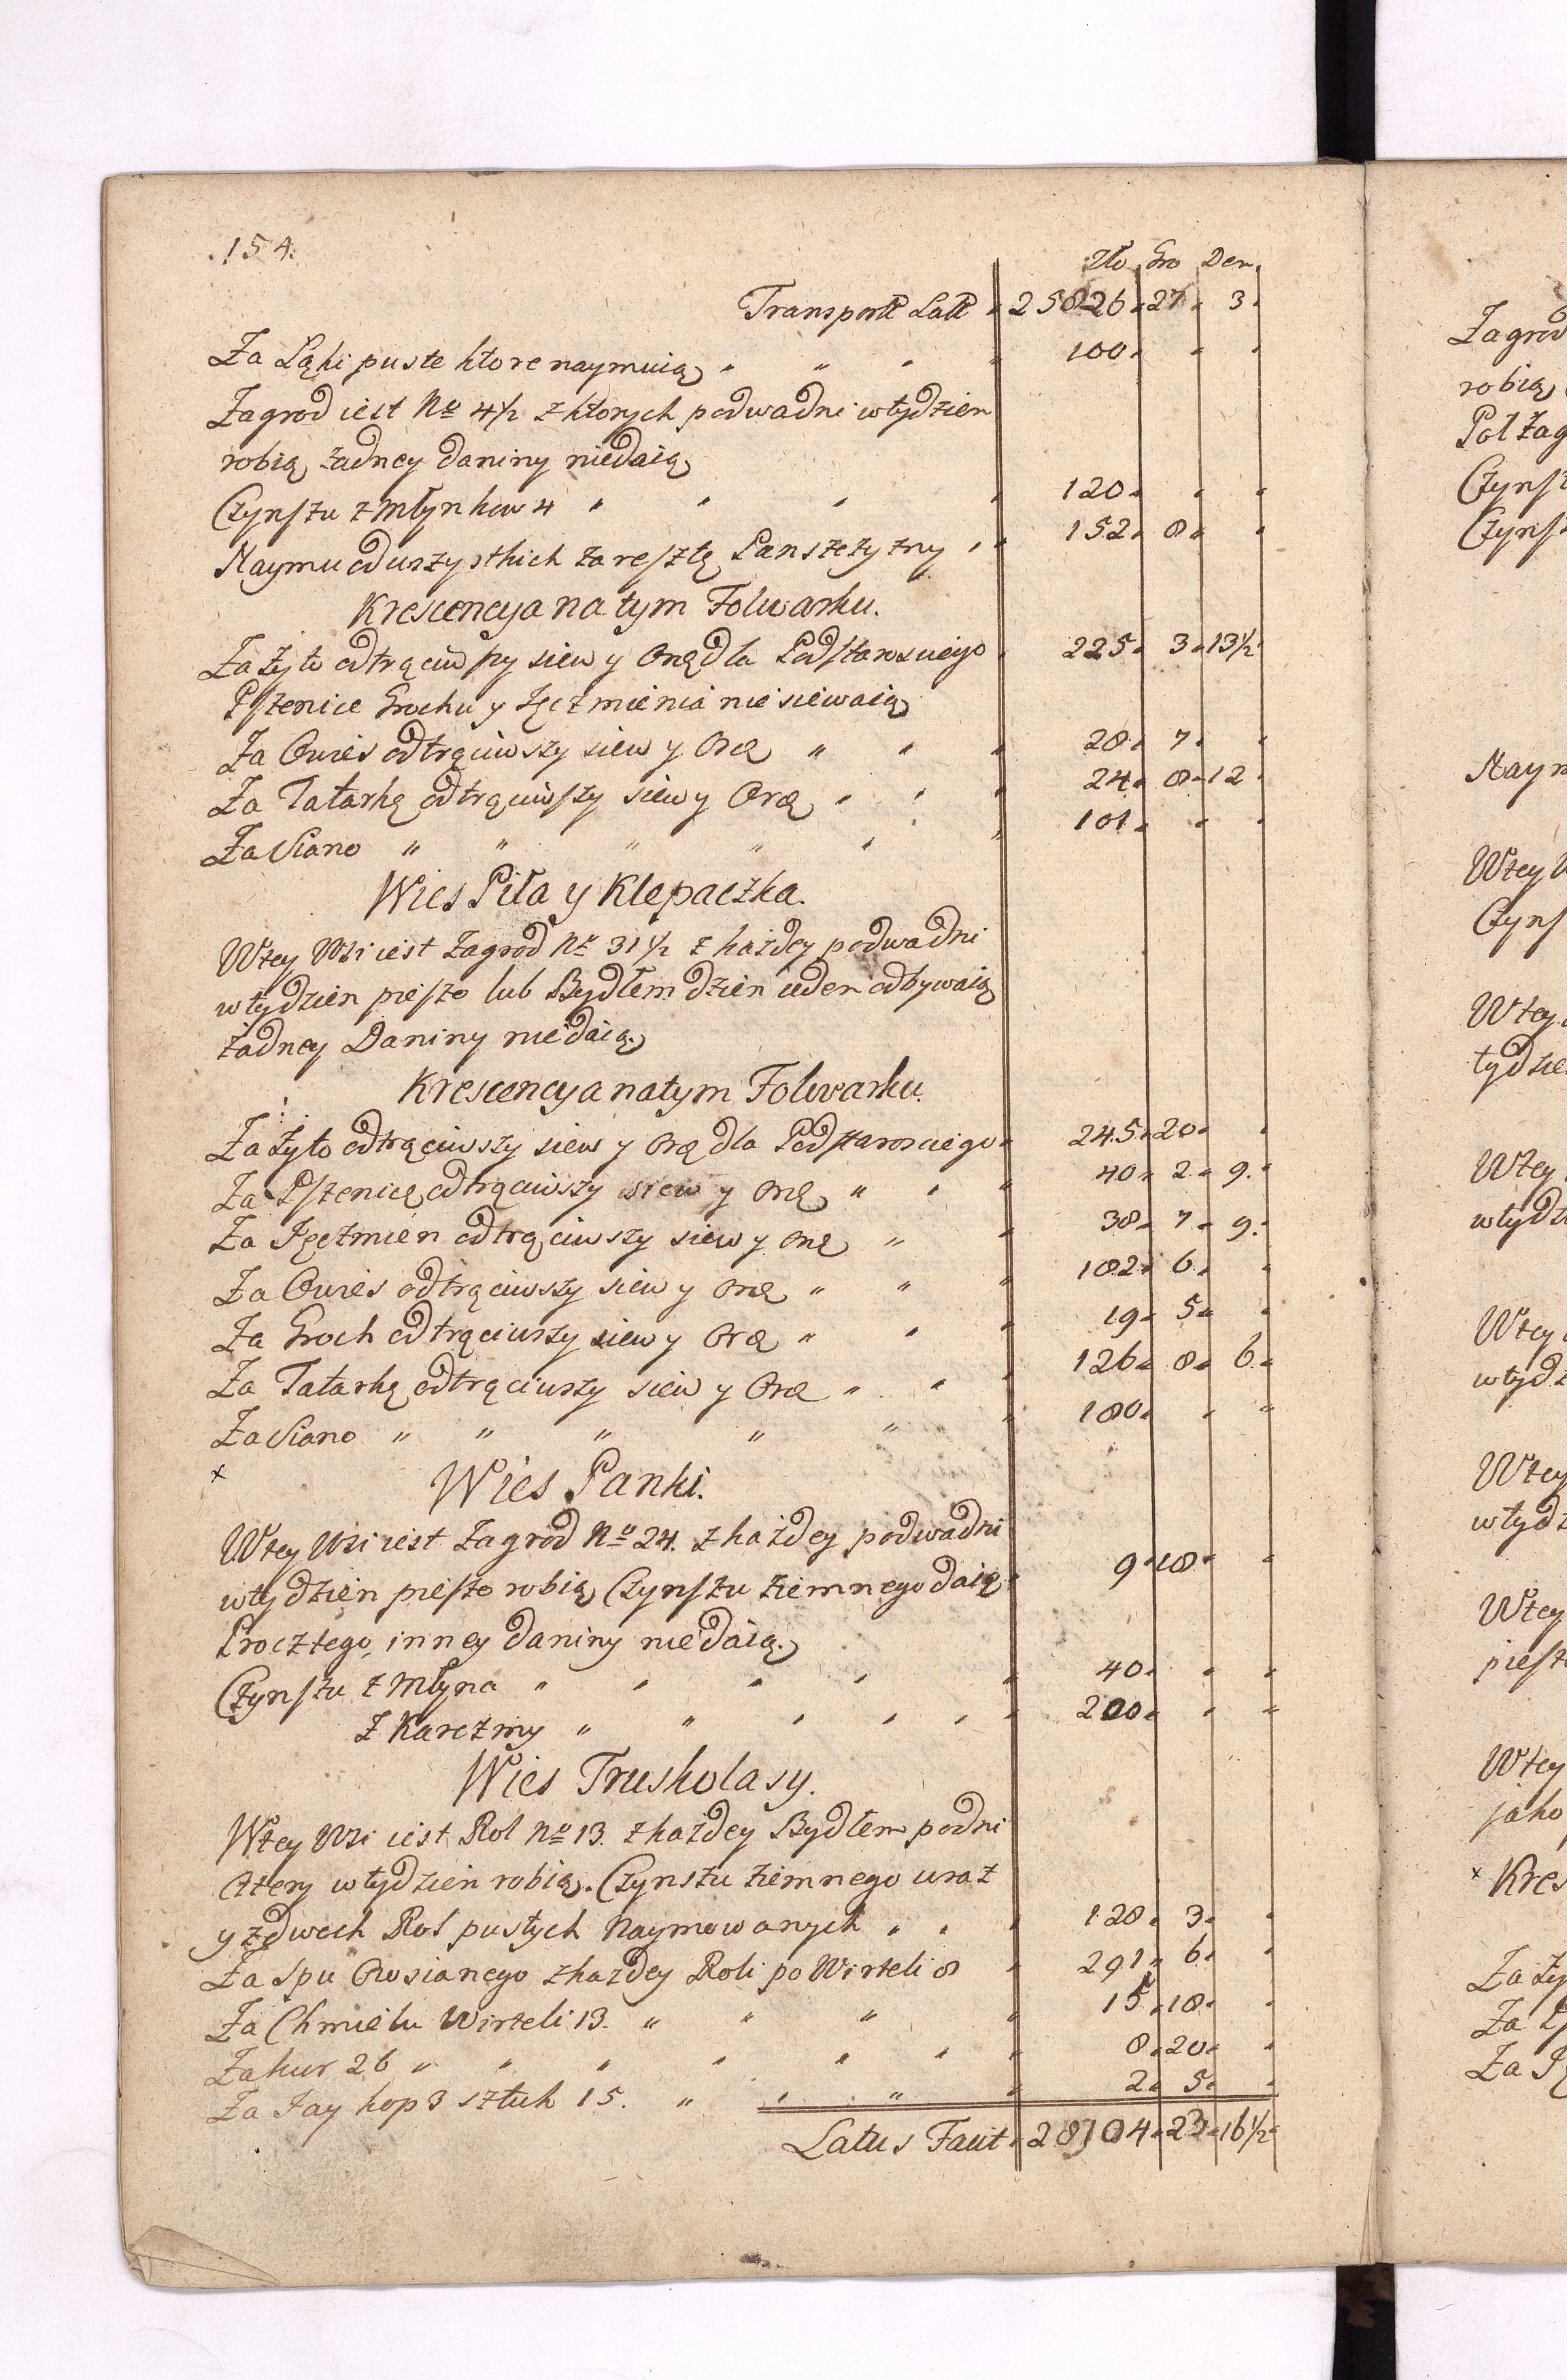 .154.
Zło Gro Den
Transportt Latt 25826 27 3
Za Łąki puste ktore naymuią 100
Zagrod iest No 4½ z ktorych podwadni wtydzien
robią, żadney Daniny niedaią
Czynszu z Młynkow 4 120
Naymu od wszystkich za resztę Panszczyzny 152 8
Krescencya na tym Folwarku.
Za Żyto odtrąciwszy siew y Orą dla Podstarosciego 225 3 13½
Pszenice Grochu y Jęczmienia nie siewaią
Za Owies odtrąciwszy siew y Orą 28 7
Za Tatarkę odtrąciwszy siew y Orą 24 8 12
Za Siano 101
Wies Piła y Klepaczka.
Wtey Wsi iest Zagrod No 31½ z każdey podwadni
wtydzien pieszo lub Bydłem dzien ieden odbywaią
żadney Daniny niedaią.
Krescencya natym Folwarku.
Za żyto odtrąciwszy siew y Orą dla Podstarosciego 245 20
Za Pszenicę odtrąciwszy siew y Orą 40 2 9.
Za Jęczmien odtrąciwszy siew y Orą 38 7 9.
Za Owies odtrąciwszy siew y Orą 182 6
Za Groch odtrąciwszy siew y Orą 19 5
Za Tatarkę odtrąciwszy siew y Orą 126 8 6
Za Siano 180
x Wies Panki.
Wtey Wsi iest Zagrod No 24. z każdey podwadni
wtydzien pieszo robią, Czynszu ziemnego daią 9 18
Procztego, inney daniny niedaią.
Czynszu z Młyna 40
z Karczmy 200
Wies Truskolasy.
Wtey Wsi iest Rol No 13. z każdey Bydłem podni
cztery wtydzien robią. Czynszu ziemnego wraz
y zdwoch Rol pustych Naymowanych 128 3
Za Spu Owsianego zkazdey Roli po Wirteli 8 291 6
Za Chmielu Wirteli 13. 15 18
Za kur 26 8 20
Za Jay kop 3 sztuk 15. 2 5
Latus Facit 28104 22 16½
Zagrod
robią
Pol Zag
Czynsz
Czynsz
Naym
Wtey W
Czyns
Wtey
tydzie
Wtey
wtydz
Wtey
wtydz
Wtey
wtydz
Wtey
pieszo
Wtey
jako
x Kres
Za Ży
Za P
Za J